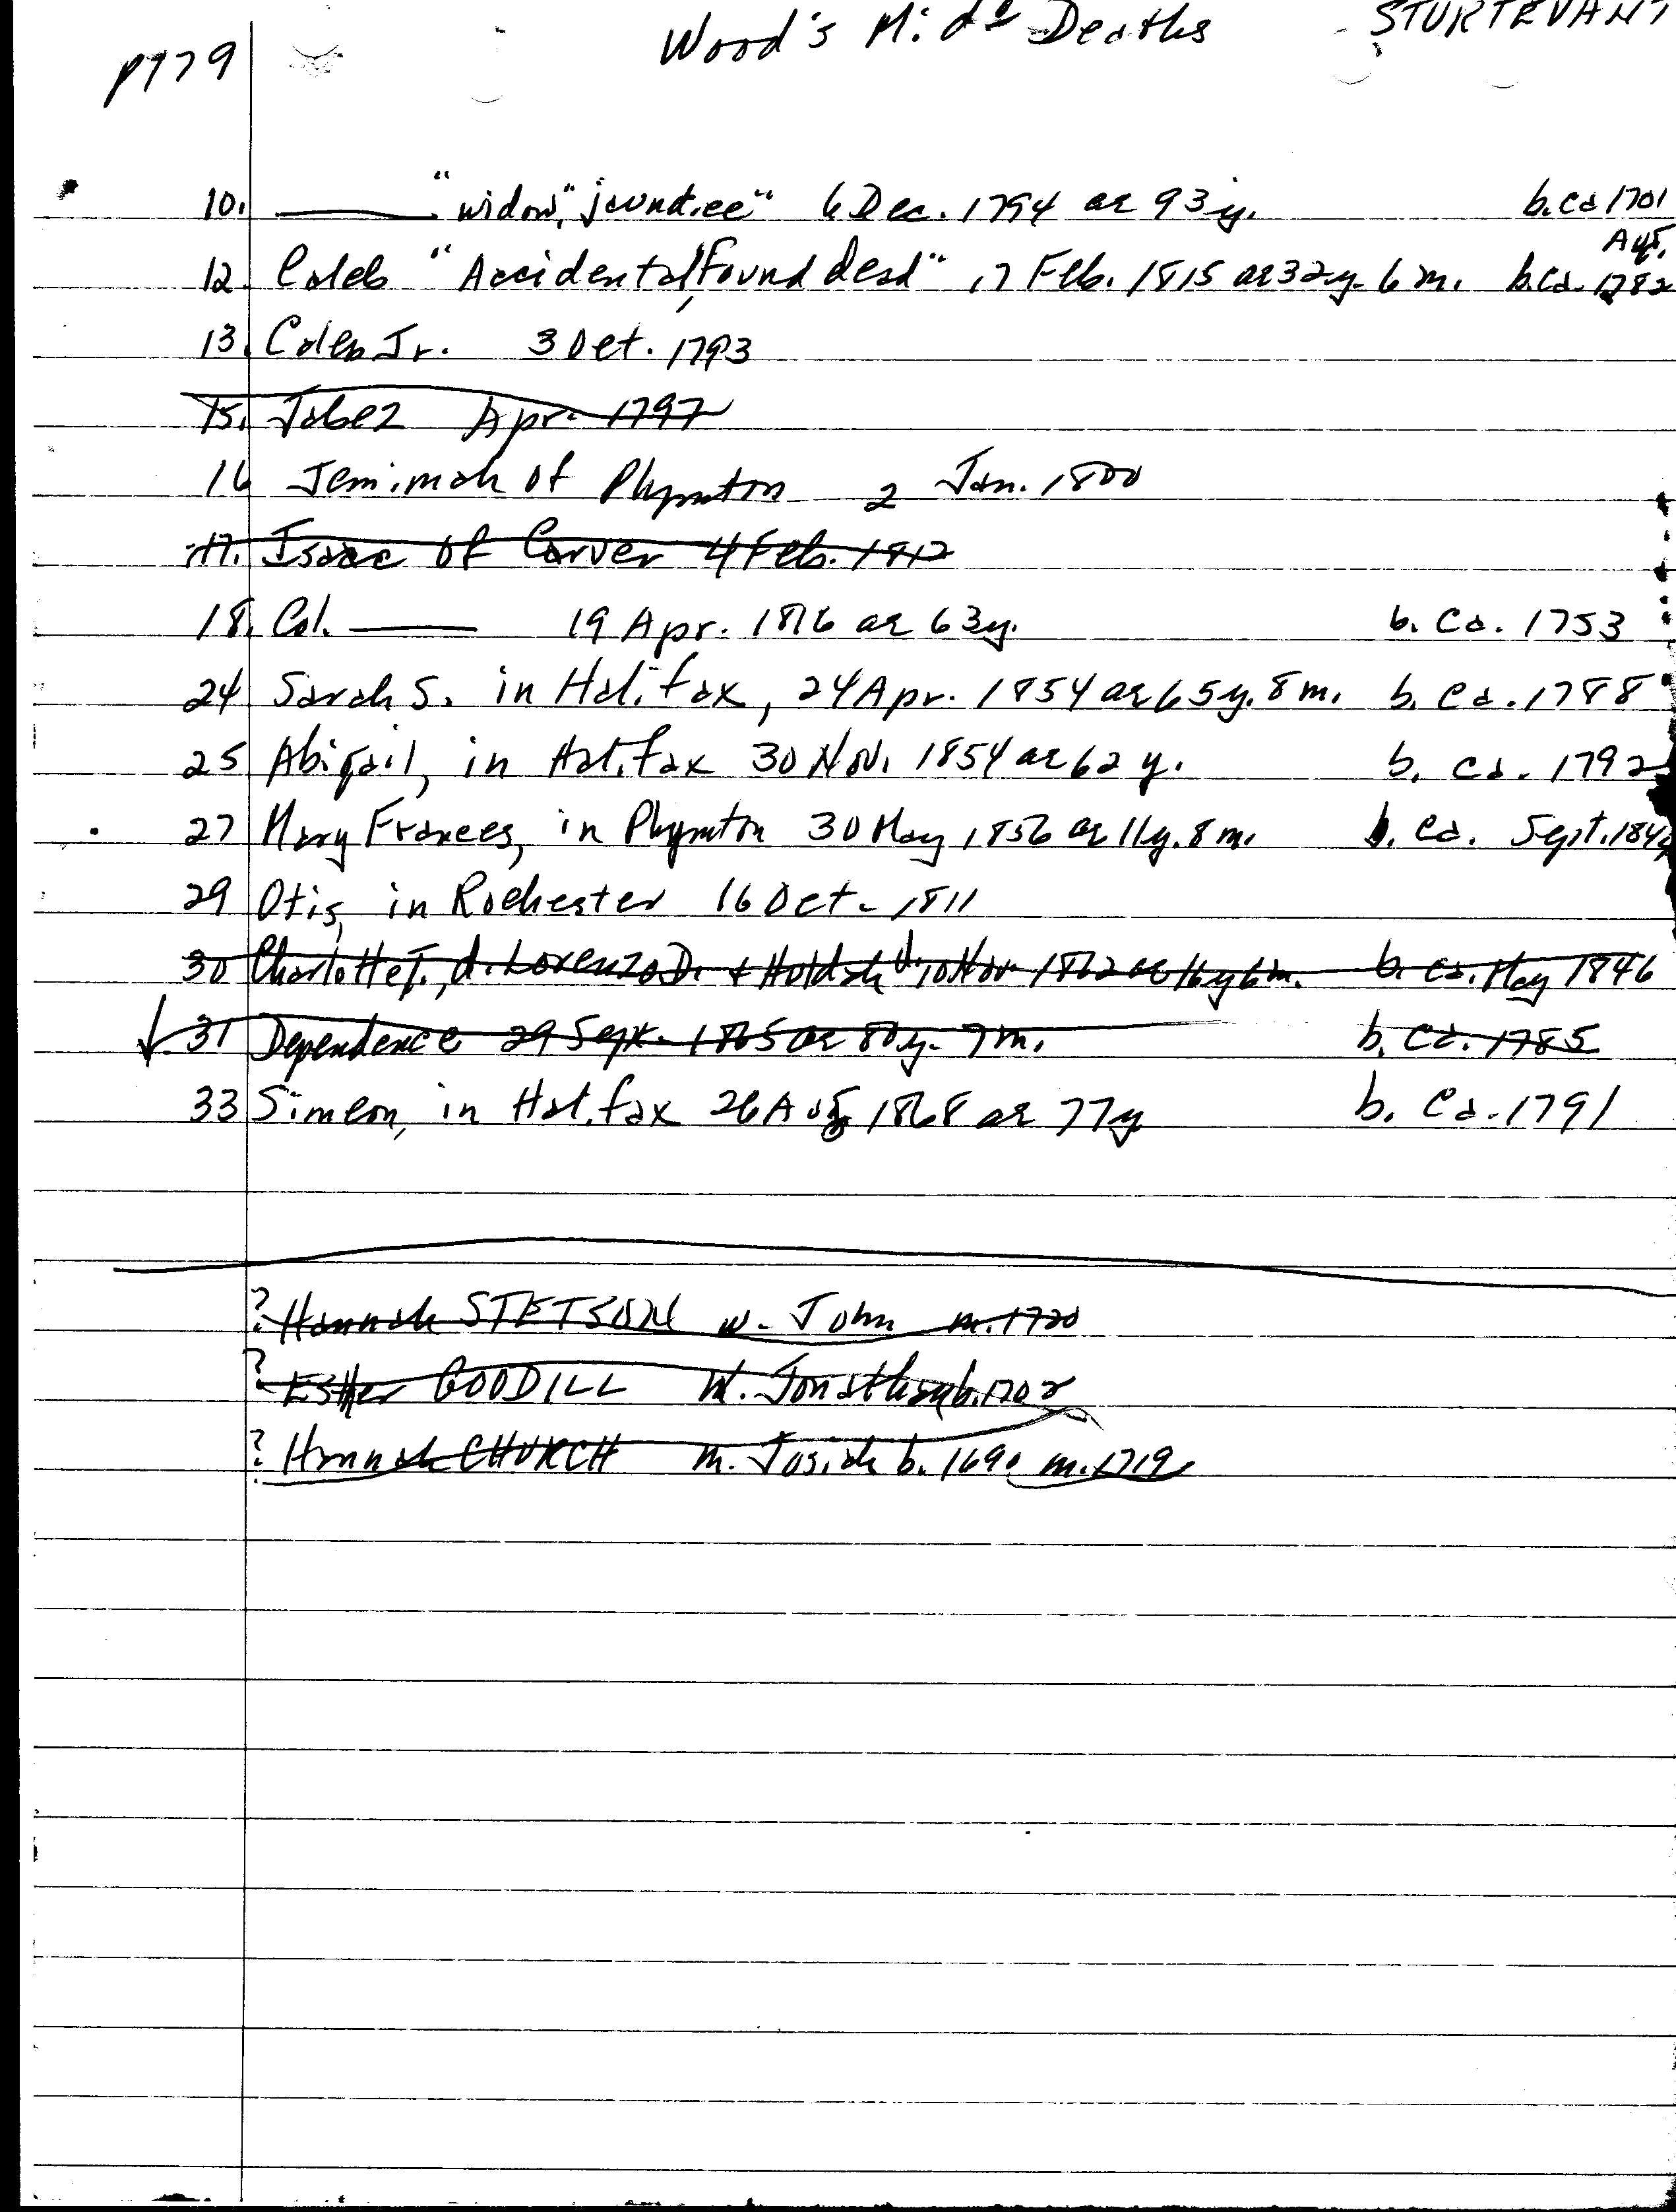 Wood's Mids Deaths STURTEVANT
p179
10. —— "widow," jaundice" 6 Dec. 1794 ae 93 y. b. ca 1701
Aug.
12. Caleb "Accidental, found dead" 17 Feb. 1815 ae 32 y. 6 m. b. ca. 1782
13. Caleb Jr. 3 Oct. 1793
15. Jabez Apr. 1797
16 Jemimah of Plympton 2 Jan. 1800
17. Isaac of Carver 4 Feb. 1812
18. Col. —— 19 Apr. 1816 ae 63 y. b. ca. 1753
24 Sarah S. in Halifax, 24 Apr. 1854 ae 65 y. 8 m. b. ca. 1788
25 Abigail, in Halifax 30 Nov. 1854 ae 62 y. b. ca. 1792
27 Mary Frances, in Plympton 30 May 1856 ae 11 y. 8 m. b. ca. Sept. 184
29 Otis, in Rochester 16 Oct. 1811
30 Charlotte T., d. Lorenzo D. & Huldah 10 Nov. 1862 ae 16 y 6 m. b. ca. May 1846
31 Dependence 29 Sept. 1865 ae 80 y. 7 m. b. ca. 1785
33 Simeon, in Halifax 26 Aug 1868 ae 77 y b. ca. 1791
? Hannah STETSON w. John m. 1720
? Esther GOODILL m. Jonathan b. 1702
? Hannah CHURCH m. Josiah b. 1690 m. 1719